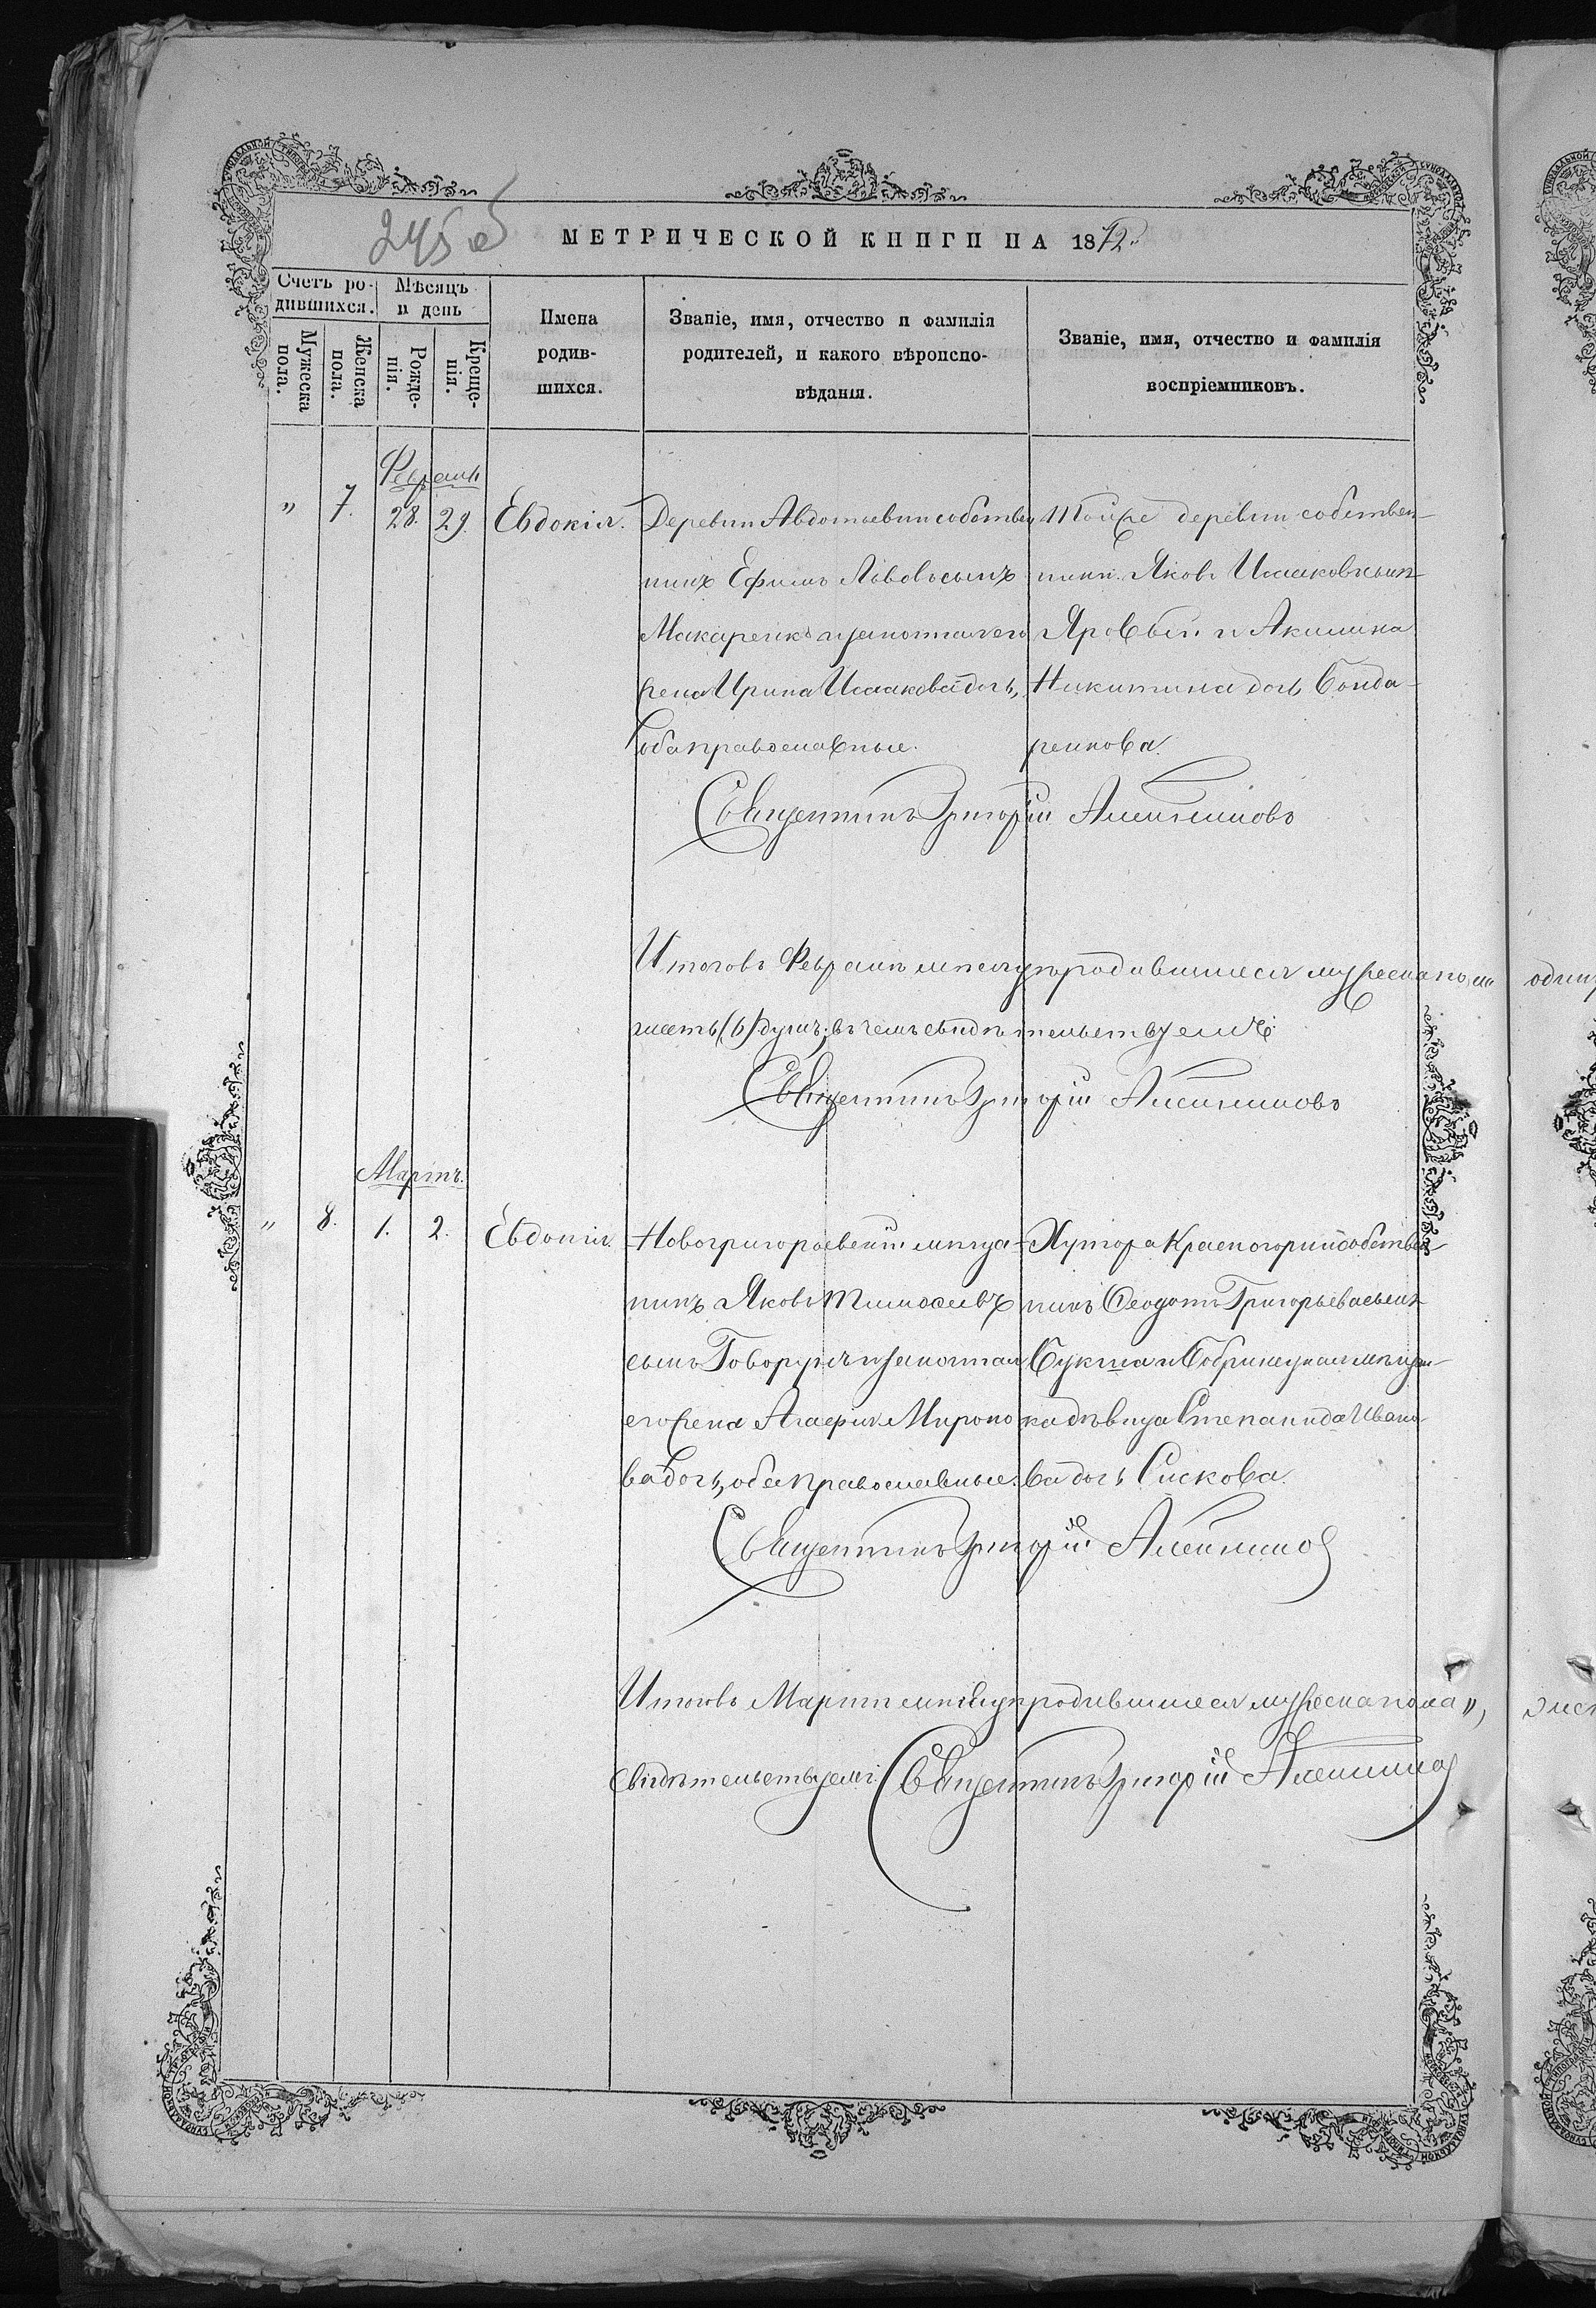 245 об
МЕТРИЧЕСКОЙ КНИГИ НА 1872
Счетъ ро-
дившихся.
Мужеска
пола.
Женска
пола.
Мѣсяцъ
и день
Рожде-
нія.
Креще-
нія.
Имена
родив-
шихся.
Званіе, имя, отчество и фамилія
родителей, и какого вѣроиспо-
вѣданія.
Званіе, имя, отчество и фамилія
воспріемниковъ.
Февраль
" 7. 28. 29. Евдокія.
Деревни Авдотьевки собствен
никъ Ефимъ Львовъ сынъ
Макаренко и законная его
жена Ирина Исаакова дочь,
оба православные.
Той же деревни собствен-
никъ Яковъ Исааковъ сынъ
Яровый и Акилина
Никитина дочь Бонда-
ренкова.
Священникъ Григорій
Итого въ Февралѣ мѣсяцѣ родившихся мужеска пола
шесть (6) душъ; въ чемъ свидѣтельствуемъ:
Священникъ Григорій
Мартъ.
" 8. 1. 2. Евдокія.
Новогригорьевскій мѣща-
нинъ Яковъ Тимоѳеевъ
сынъ Говорунъ и законная
его жена Агафія Мироно
ва дочь, оба православные.
Хутора Красногорки собствен
никъ Ѳеодотъ Григорьевъ сынъ
Букша и Бобринецкая мѣщан-
ка дѣвица Степанида Ивано-
ва дочь Сискова.
Священникъ Григорій
Итого въ Мартѣ мѣсяцѣ родившихся мужеска пола ",
свидѣтельствуемъ: Священникъ Григорій